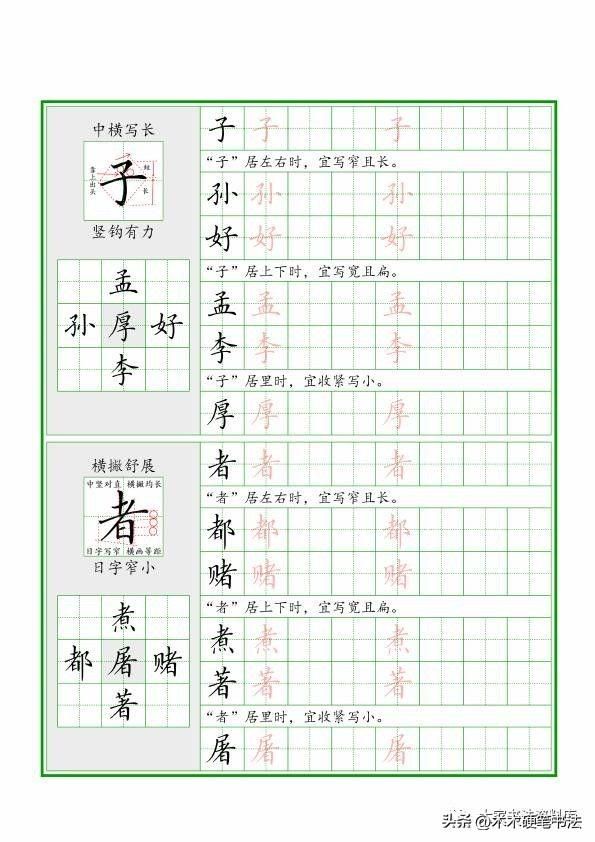 中横写长
靠上出头 短 长
子
竖钩有力
孟
孙 厚 好
李
子 子 子
“子”居左右时，宜写窄且长。
孙 孙 孙
好 好 好
“子”居上下时，宜写宽且扁。
孟 孟 孟
李 李 李
“子”居里时，宜收紧写小。
厚 厚 厚
横撇舒展
中竖对直 横撇均长
者
日字写窄 横画等距
日字窄小
煮
都 屠 赌
著
者 者 者
“者”居左右时，宜写窄且长。
都 都 都
赌 赌 赌
“者”居上下时，宜写宽且扁。
煮 煮 煮
著 著 著
“者”居里时，宜收紧写小。
屠 屠 屠
头条 @木木硬笔书法